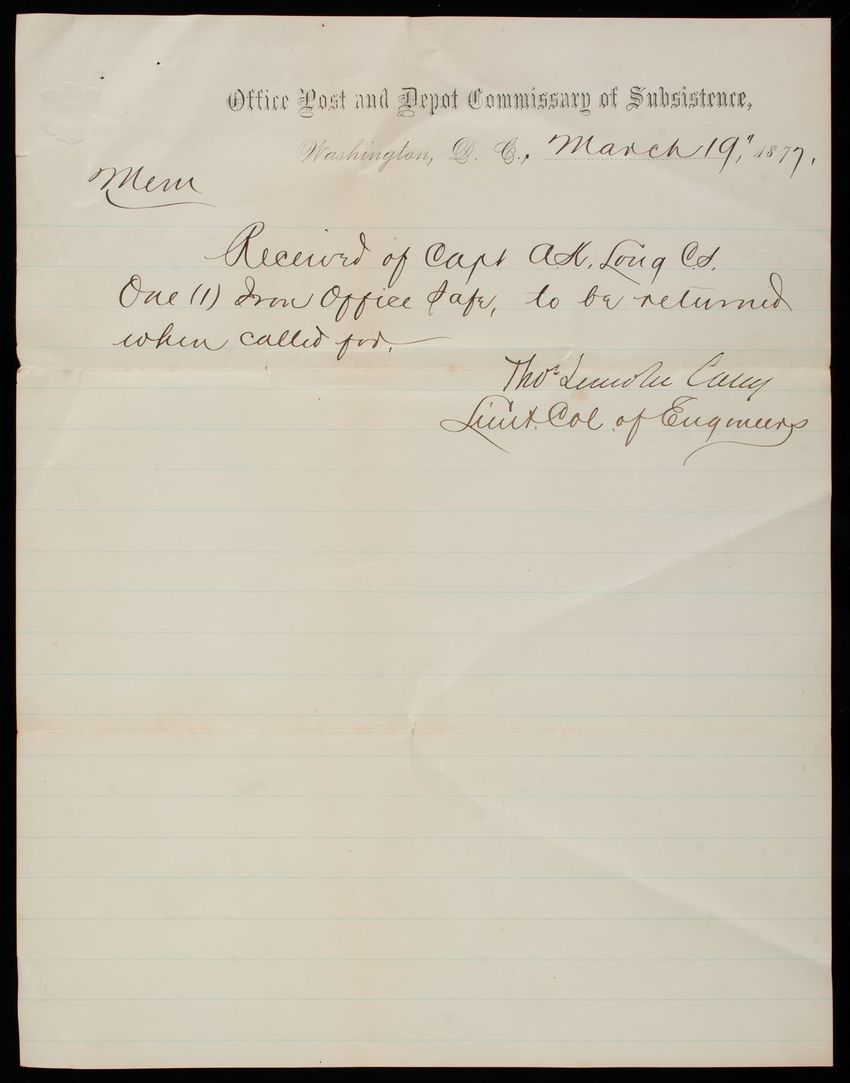 Office Post and Depot Commissary of Subsistence,
Washington, D. C., March 19," 1877.
Mem
Received of Capt A.K. Long C.S.
One (1) Iron Office Safe, to be returned
when called for.
Thos Lincoln Casey
Lieut. Col. of Engineers